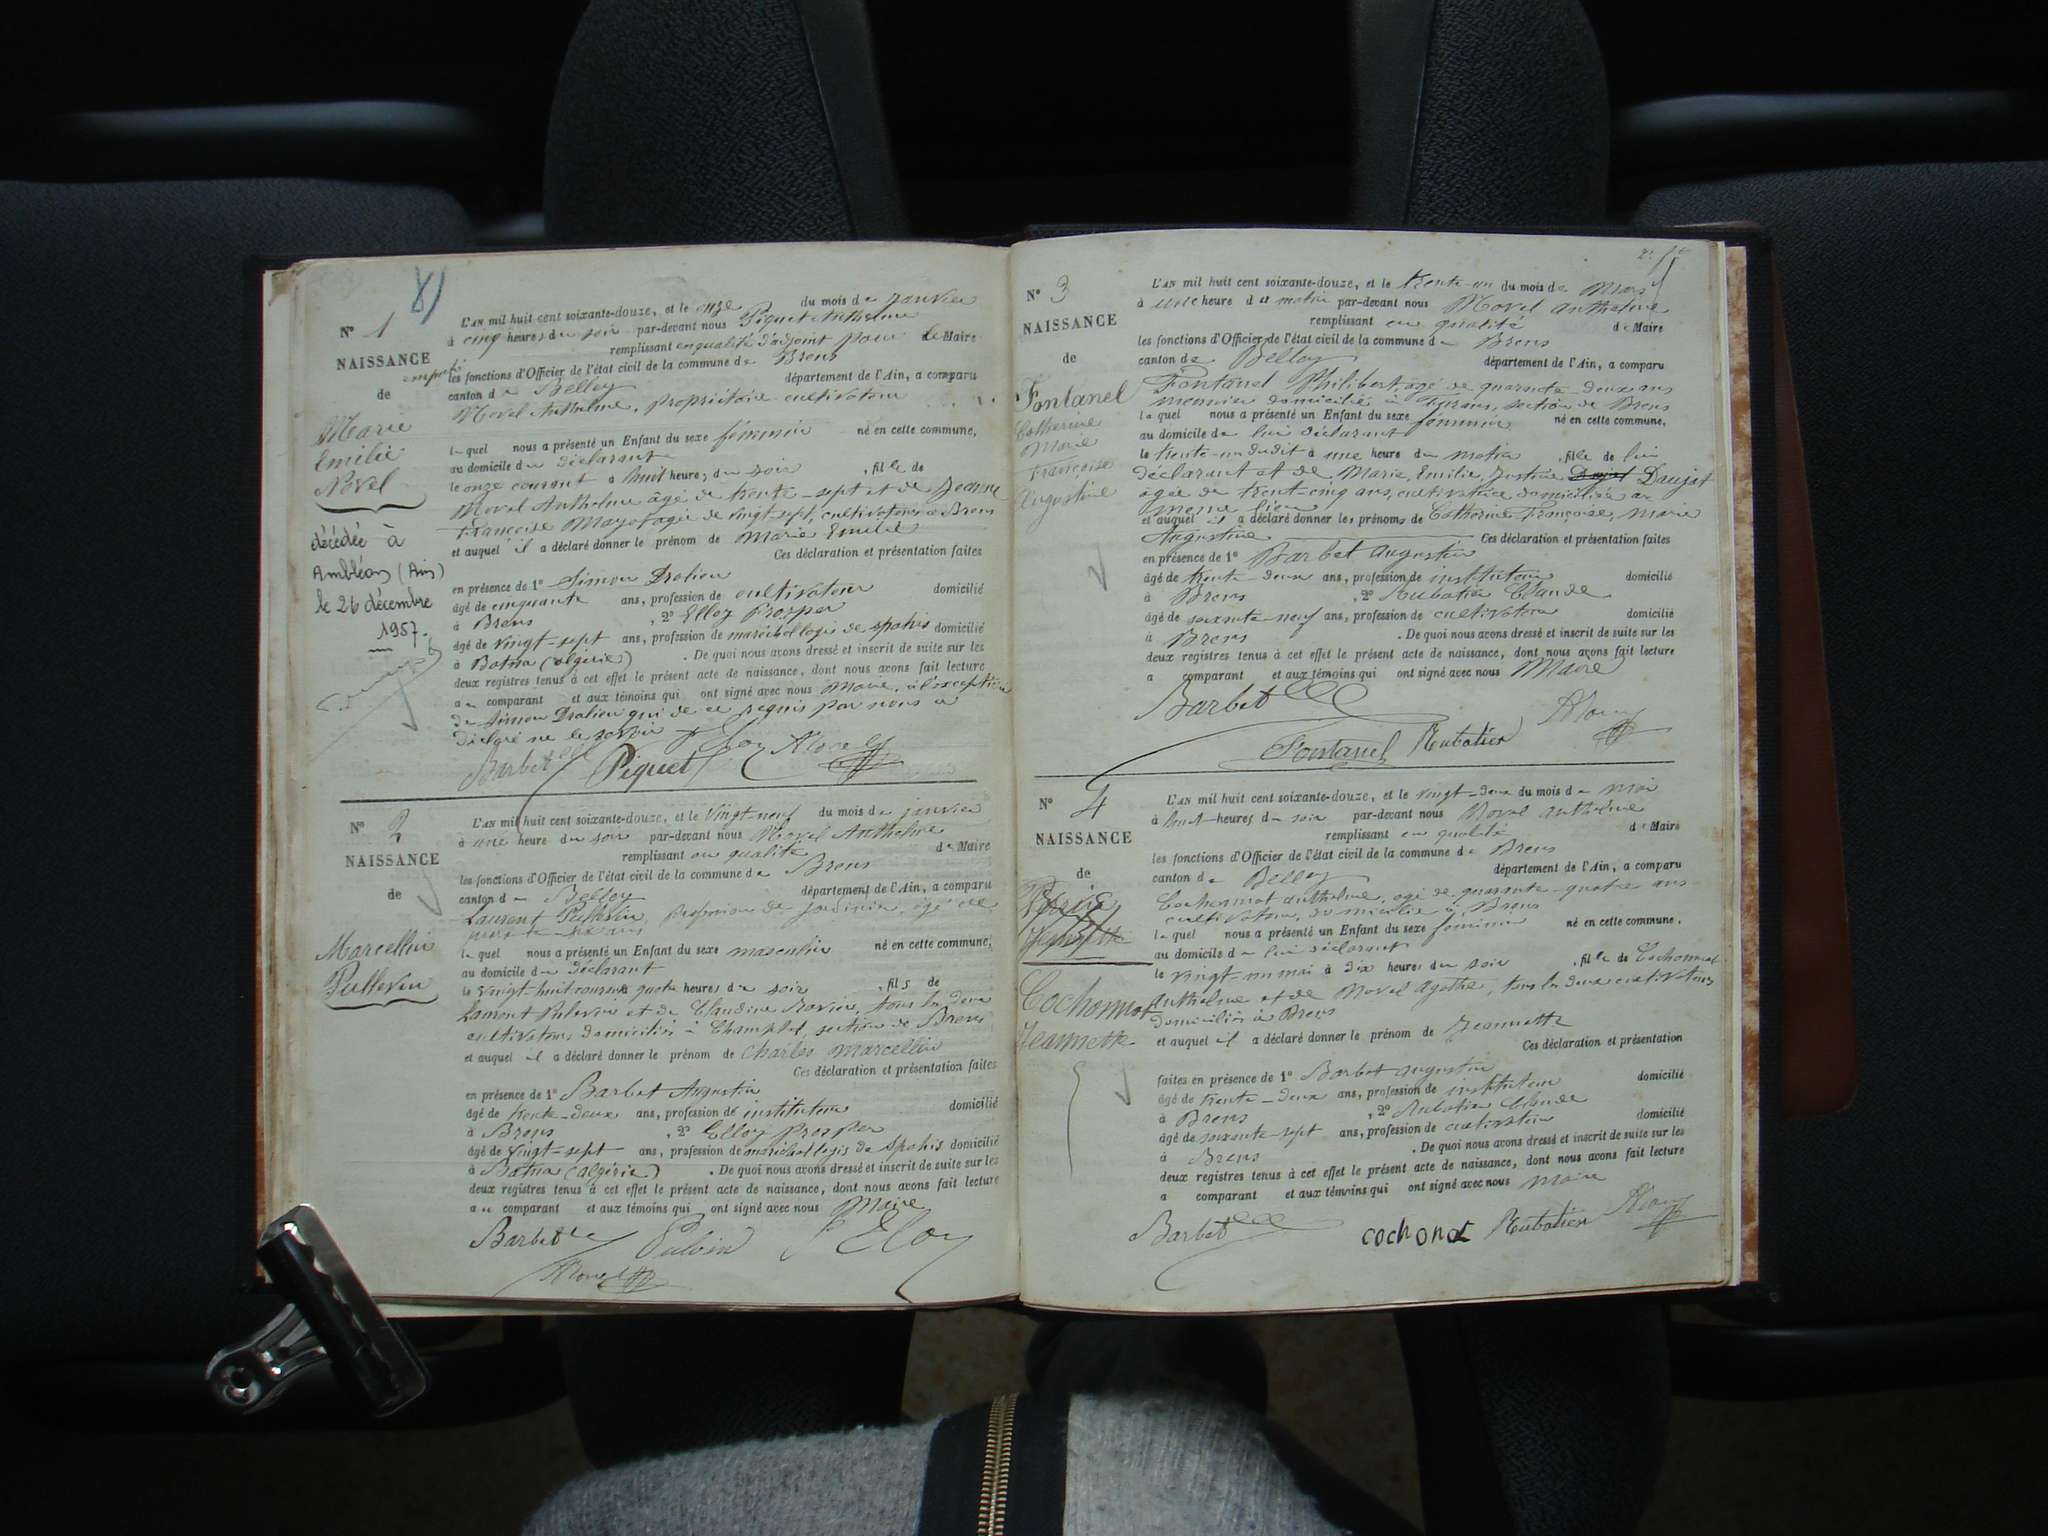 8)
N° 1
NAISSANCE
de
Marie
Emilie
Novel
décédée à
Ambléon (Ain)
le 26 décembre
1957.
L'AN mil huit cent soixante-douze, et le onze du mois de janvier
à cinq heures du soir par-devant nous Piquet Anthelme
remplissant en qualité d'adjoint pour le Maire
empêché les fonctions d'Officier de l'état civil de la commune de Brens
canton de Belley département de l'Ain, a comparu
Novel Anthelme, propriétaire cultivateur
lequel nous a présenté un Enfant du sexe féminin né en cette commune,
au domicile du déclarant
le onze courant à huit heures du soir, fille de
Novel Anthelme âgé de trente-sept et de Jeanne
Françoise Mayot âgée de vingt-sept, cultivateurs à Brens
et auquel il a déclaré donner le prénom de Marie Emilie
Ces déclaration et présentation faites
en présence de 1° Simon Dralieu
âgé de cinquante ans, profession de cultivateur domicilié
à Brens, 2° Elloy Prosper
âgé de vingt-sept ans, profession de maréchal logis de spahis domicilié
à Batna (algérie). De quoi nous avons dressé et inscrit de suite sur les
deux registres tenus à cet effet le présent acte de naissance, dont nous avons fait lecture
au comparant et aux témoins qui ont signé avec nous Maire, à l'exception
de Simon Dralieu qui de ce requis par nous a
déclaré ne le savoir
Barbet Piquet Eloy Novel
N° 2
NAISSANCE
de
Marcellin
Pullevin
L'AN mil huit cent soixante-douze, et le vingt-neuf du mois de janvier
à une heure du soir par-devant nous Novel Anthelme
remplissant en qualité de Maire
les fonctions d'Officier de l'état civil de la commune de Brens
canton de Belley département de l'Ain, a comparu
Laurent Pullevin, profession de jardinier, âgé de
ans
lequel nous a présenté un Enfant du sexe masculin né en cette commune,
au domicile du déclarant
le vingt-huit courant à quatre heures du soir, fils de
Laurent Pulevin et de Claudine Ravier, tous les deux
cultivateurs domiciliés à Champtel, section de Brens
et auquel il a déclaré donner le prénom de Charles Marcellin
Ces déclaration et présentation faites
en présence de 1° Barbet Augustin
âgé de trente-deux ans, profession de instituteur domicilié
à Brens, 2° Elloy Prosper
âgé de vingt-sept ans, profession de maréchal logis de spahis domicilié
à Batna (algérie). De quoi nous avons dressé et inscrit de suite sur les
deux registres tenus à cet effet le présent acte de naissance, dont nous avons fait lecture
au comparant et aux témoins qui ont signé avec nous Maire
Barbet Pulvin Eloy
Novel
N° 3
NAISSANCE
de
Fontanel
Catherine
Marie
Françoise
Augustine
L'AN mil huit cent soixante-douze, et le trente-un du mois de Mars
à une heure du matin par-devant nous Novel Anthelme
remplissant en qualité de Maire
les fonctions d'Officier de l'état civil de la commune de Brens
canton de Belley département de l'Ain, a comparu
Fontanel Philibert, âgé de quarante-deux ans
menuisier domicilié à Furans, section de Brens
lequel nous a présenté un Enfant du sexe féminin né en cette commune,
au domicile de lui déclarant
le trente-un dudit à une heure du matin, fille de lui
déclarant et de Marie, Emilie, Justine Daujat Daujat
âgée de trent-cinq ans, cultivatrice domiciliée au
même lieu
et auquel il a déclaré donner les prénoms de Catherine, Françoise, Marie
Augustine Ces déclaration et présentation faites
en présence de 1° Barbet Augustin
âgé de trente-deux ans, profession de instituteur domicilié
à Brens, 2° Rubatier Claude
âgé de soixante-neuf ans, profession de cultivateur domicilié
à Brens. De quoi nous avons dressé et inscrit de suite sur les
deux registres tenus à cet effet le présent acte de naissance, dont nous avons fait lecture
a comparant et aux témoins qui ont signé avec nous Maire
Barbet Novel
Fontanel Rubatier
N° 4
NAISSANCE
de
Cochonnat
Jeannette
L'AN mil huit cent soixante-douze, et le vingt-deux du mois de mai
à huit heures du soir par-devant nous Novel Anthelme
remplissant en qualité de Maire
les fonctions d'Officier de l'état civil de la commune de Brens
canton de Belley département de l'Ain, a comparu
Cochonnat Anthelme, âgé de quarante-quatre ans
cultivateur, domicilié à Brens
lequel nous a présenté un Enfant du sexe féminin né en cette commune.
au domicile de lui déclarant
le vingt-un mai à dix heures du soir, fille de Cochonnat
Anthelme et de Novel Agathe, tous les deux cultivateurs
domiciliés à Brens
et auquel il a déclaré donner le prénom de Jeannette
Ces déclaration et présentation
faites en présence de 1° Barbet Augustin
âgé de trente-deux ans, profession de instituteur domicilié
à Brens, 2° Rubatier Claude
âgé de soixante-sept ans, profession de cultivateur domicilié
à Brens. De quoi nous avons dressé et inscrit de suite sur les
deux registres tenus à cet effet le présent acte de naissance, dont nous avons fait lecture
a comparant et aux témoins qui ont signé avec nous Maire
Barbet cochonat Rubatier Novel